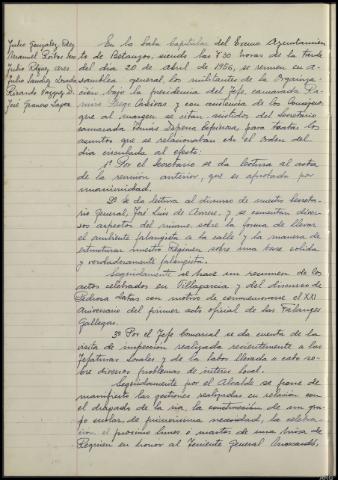 Julio González Rey
Manuel
Julio
Julio Sánchez
Ricardo Vázquez
José
En la Sala Capitular del Excmo Ayuntamien
to de Betanzos, siendo las 7'30 horas de la tarde
del día 20 de abril de 1956, se reunen en a-
samblea general, los militantes de la Organiza-
ción bajo la presidencia del Jefe, camarada
y con asistencia de los Consejeros
que al margen se citan, asistidos del Secretario
camarada Tomás Dapena Espinosa, para tratar los
asuntos que se relacionaban en el orden del
día circulada al efecto.
1º Por el Secretario se da lectura al acta
de la reunión anterior, que es aprobada por
unanimidad.
2º Se da lectura al discurso de nuestro Secreta-
rio General, José Luis de Arrese, y se comentan diver-
sos aspectos del mismo, sobre la forma de llevar
el ambiente falangista a la calle y la manera de
estructurar nuestro Régimen sobre una base sólida
y verdaderamente falangista.
Seguidamente se hace un resumen de los
actos celebrados en Villagarcía, y del discurso de
Pedrosa Latas con motivo de conmemorarse el XXI
Aniversario del primer acto oficial de las Falanges
Gallegas.
3º Por el Jefe Comarcal se da cuenta de la
visita de inspección realizada recientemente a las
Jefaturas Locales y de la labor llevada a cabo so-
bre diversos problemas de interés local.
Seguidamente por el Alcalde se pone de
manifiesto las gestiones realizadas en relación con
el dragado de la ría, la construcción de un gru-
po escolar, de primerísima necesidad, la celebra-
ción el próximo lunes o martes de una misa de
Requien en honor al Teniente General